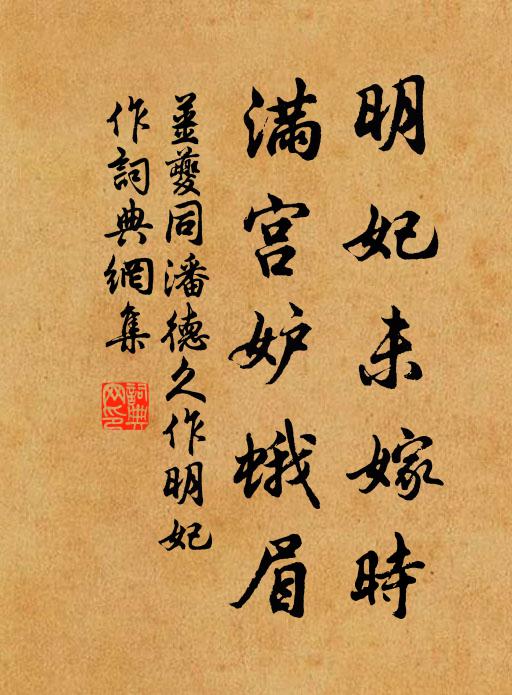 明妃未嫁時
滿宮妒蛾眉
薑夔同潘德久作明妃
作詞典網集
詞典
网印